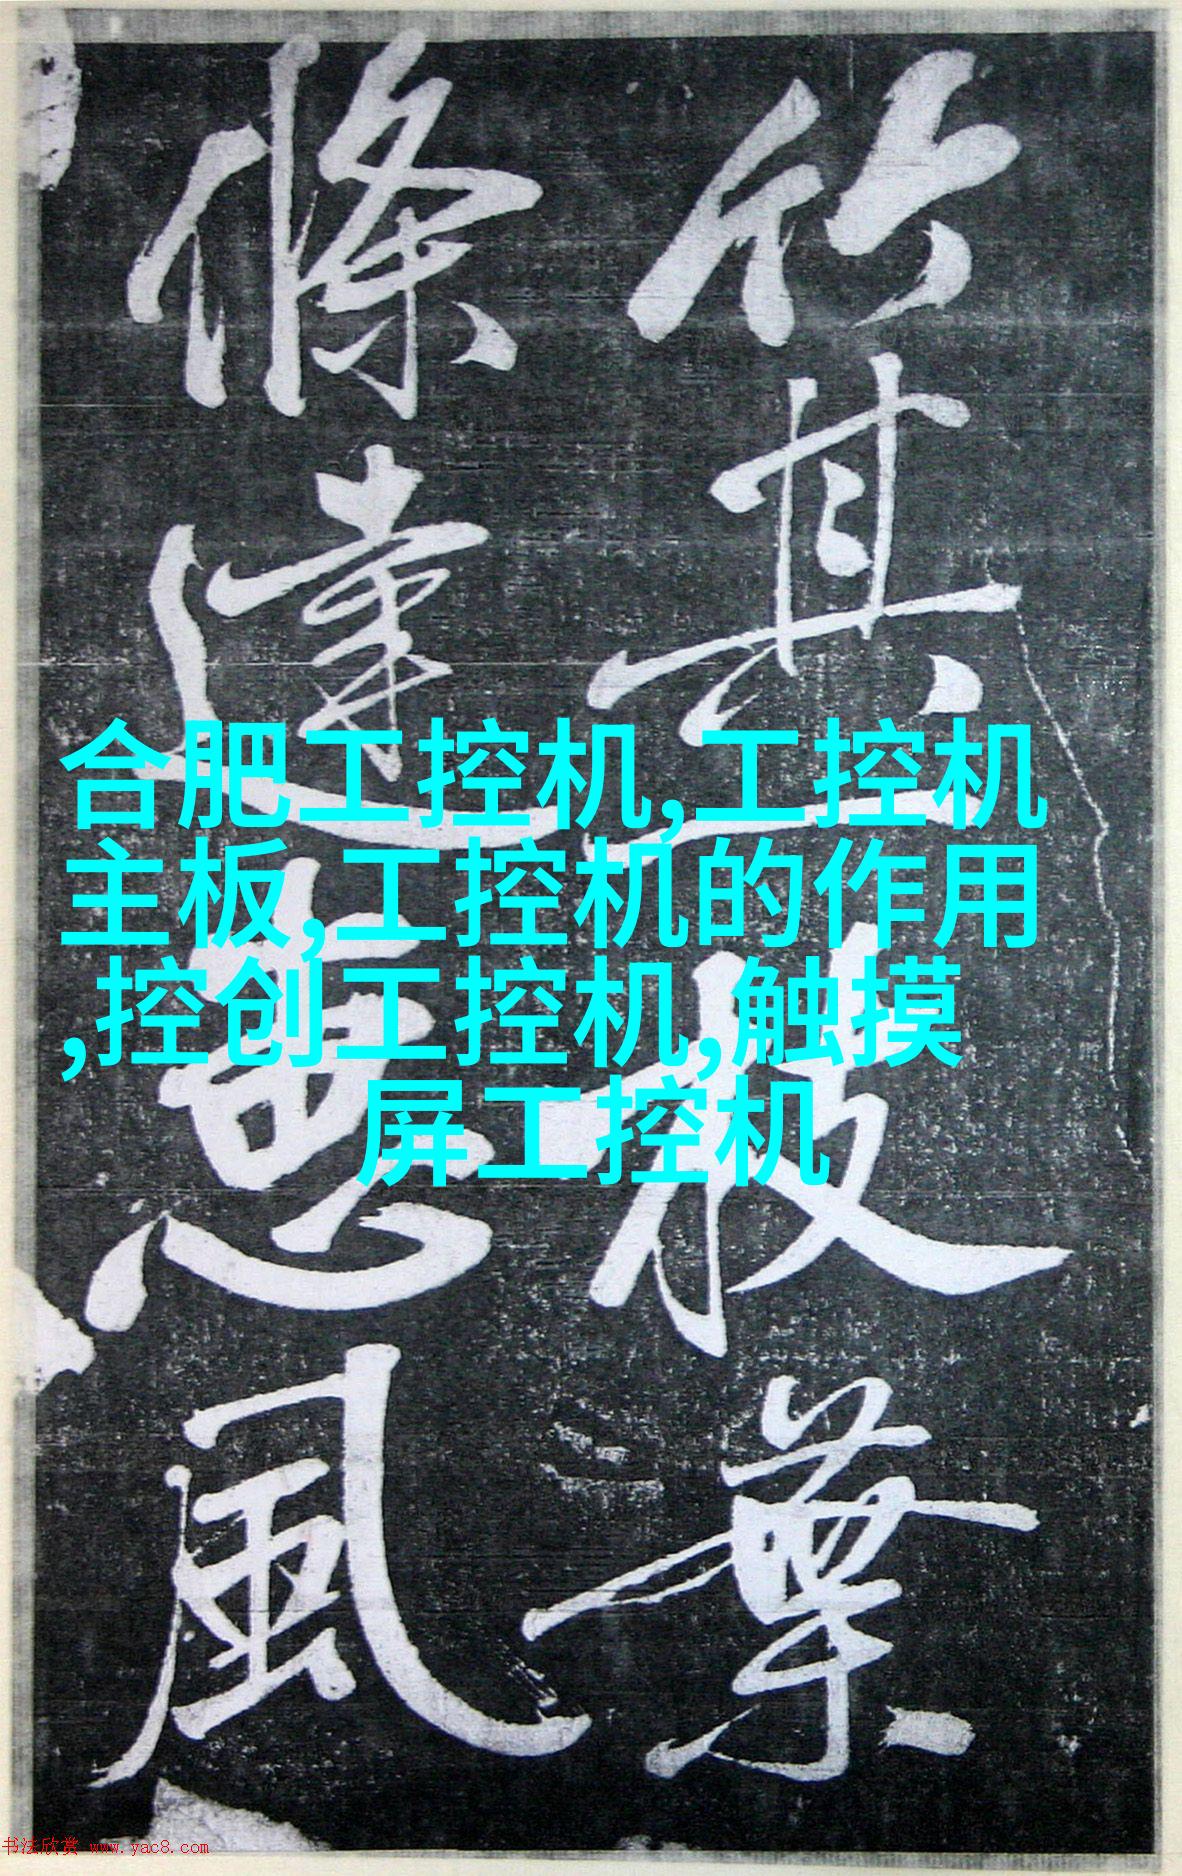 竹其枝葉
條達惠風
合肥工控机,工控机
主板,工控机的作用
,控创工控机,触摸
屏工控机
书法欣赏 www.yac8.com